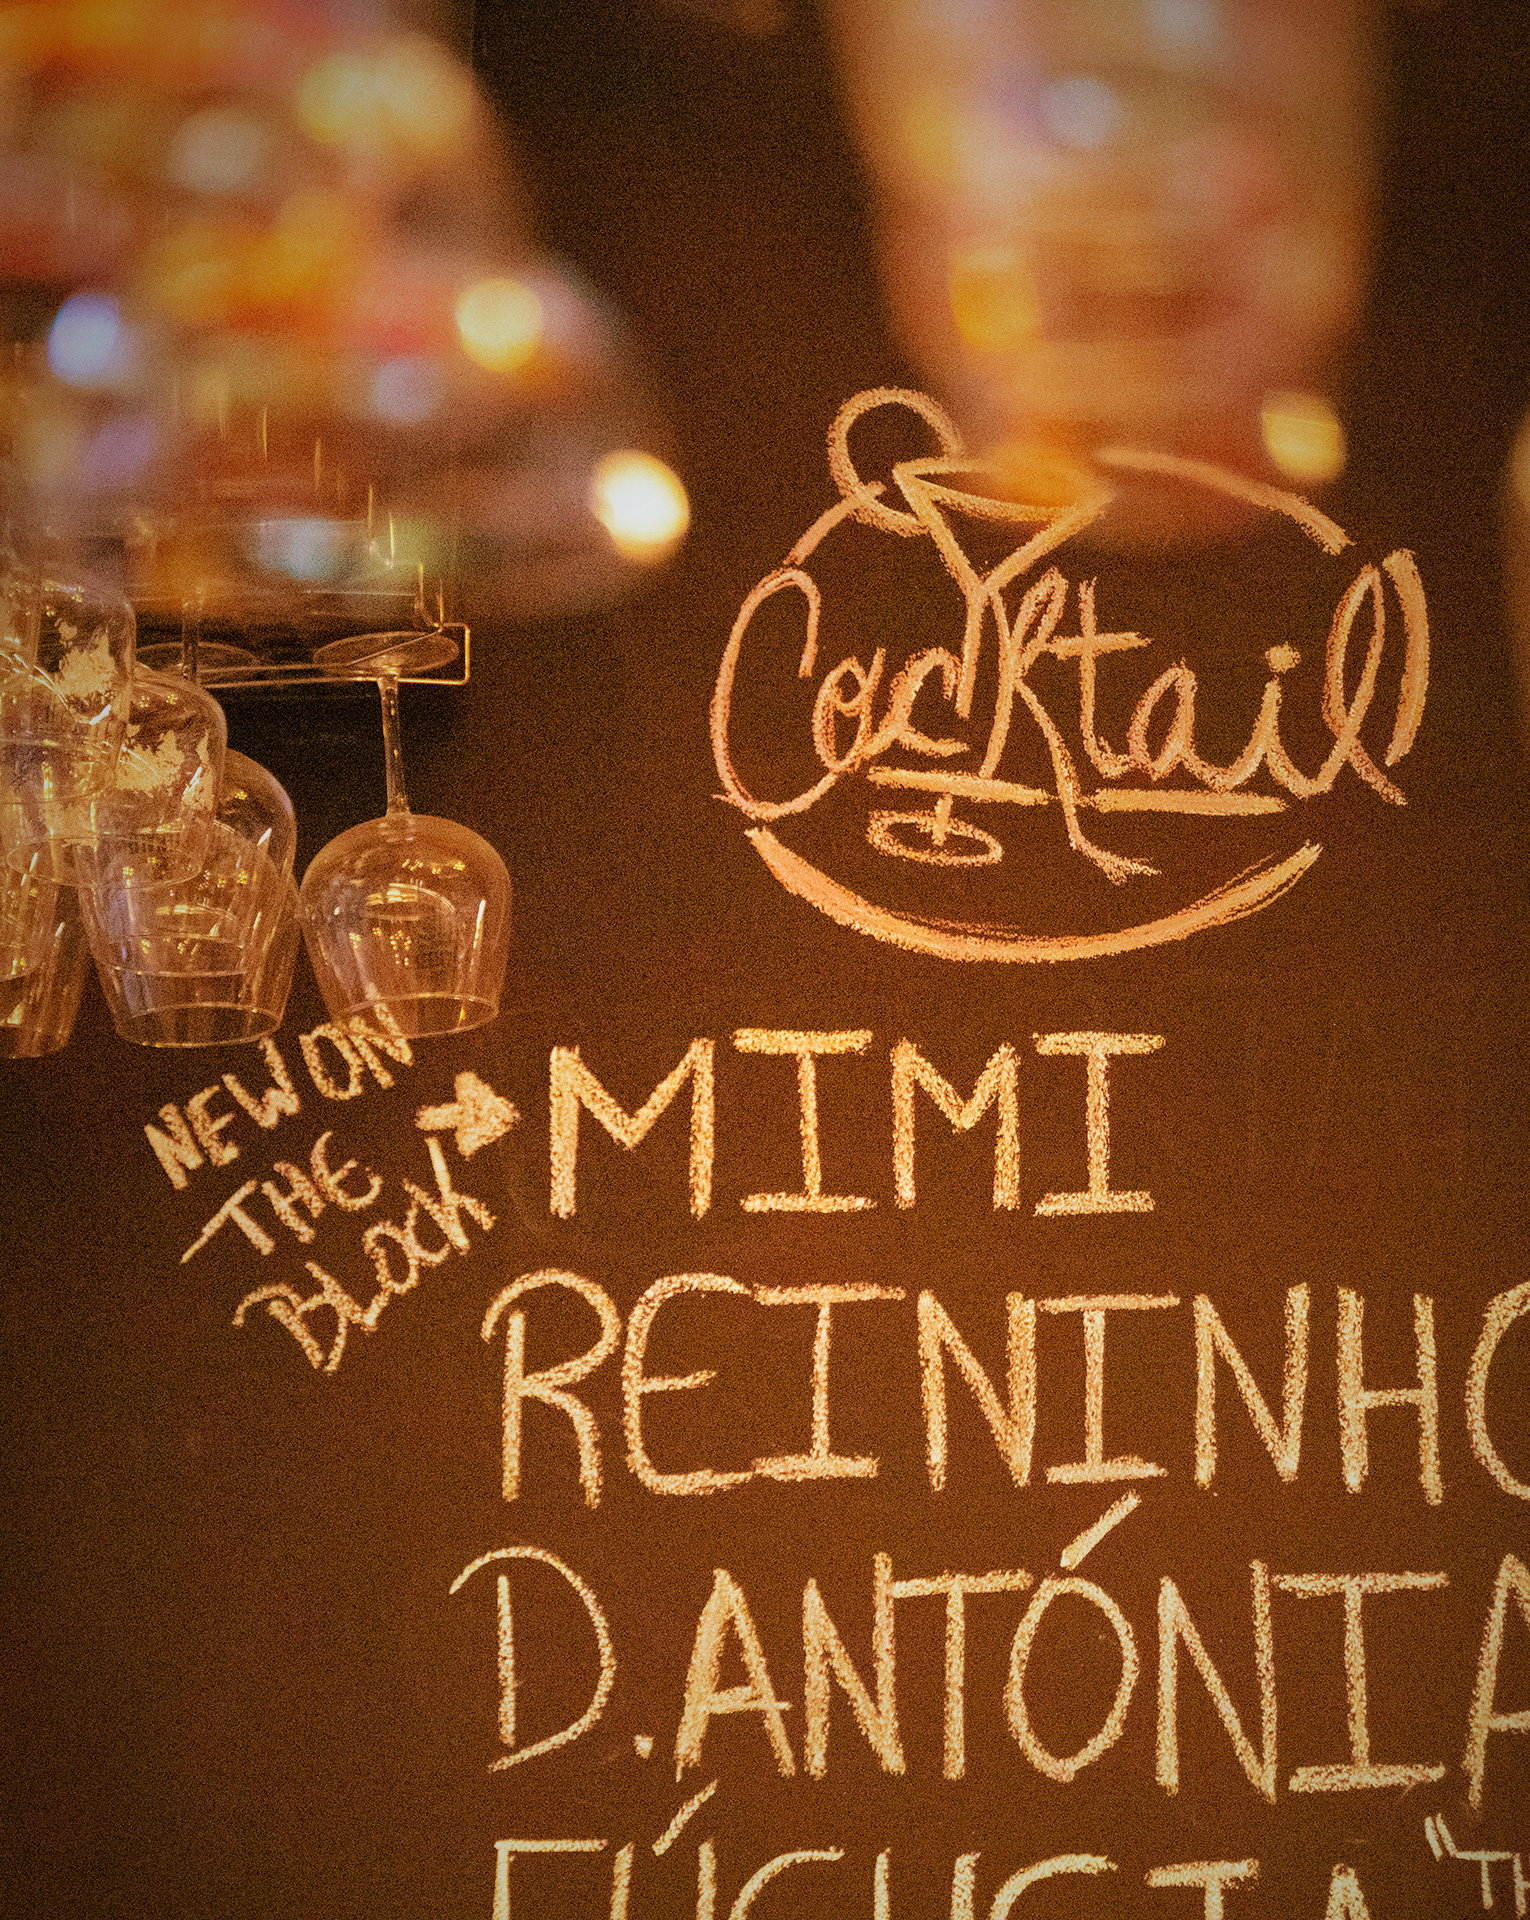 Cocktail
NEW ON
THE
BLOCK
MIMI
REININHO
D. ANTÓNIA